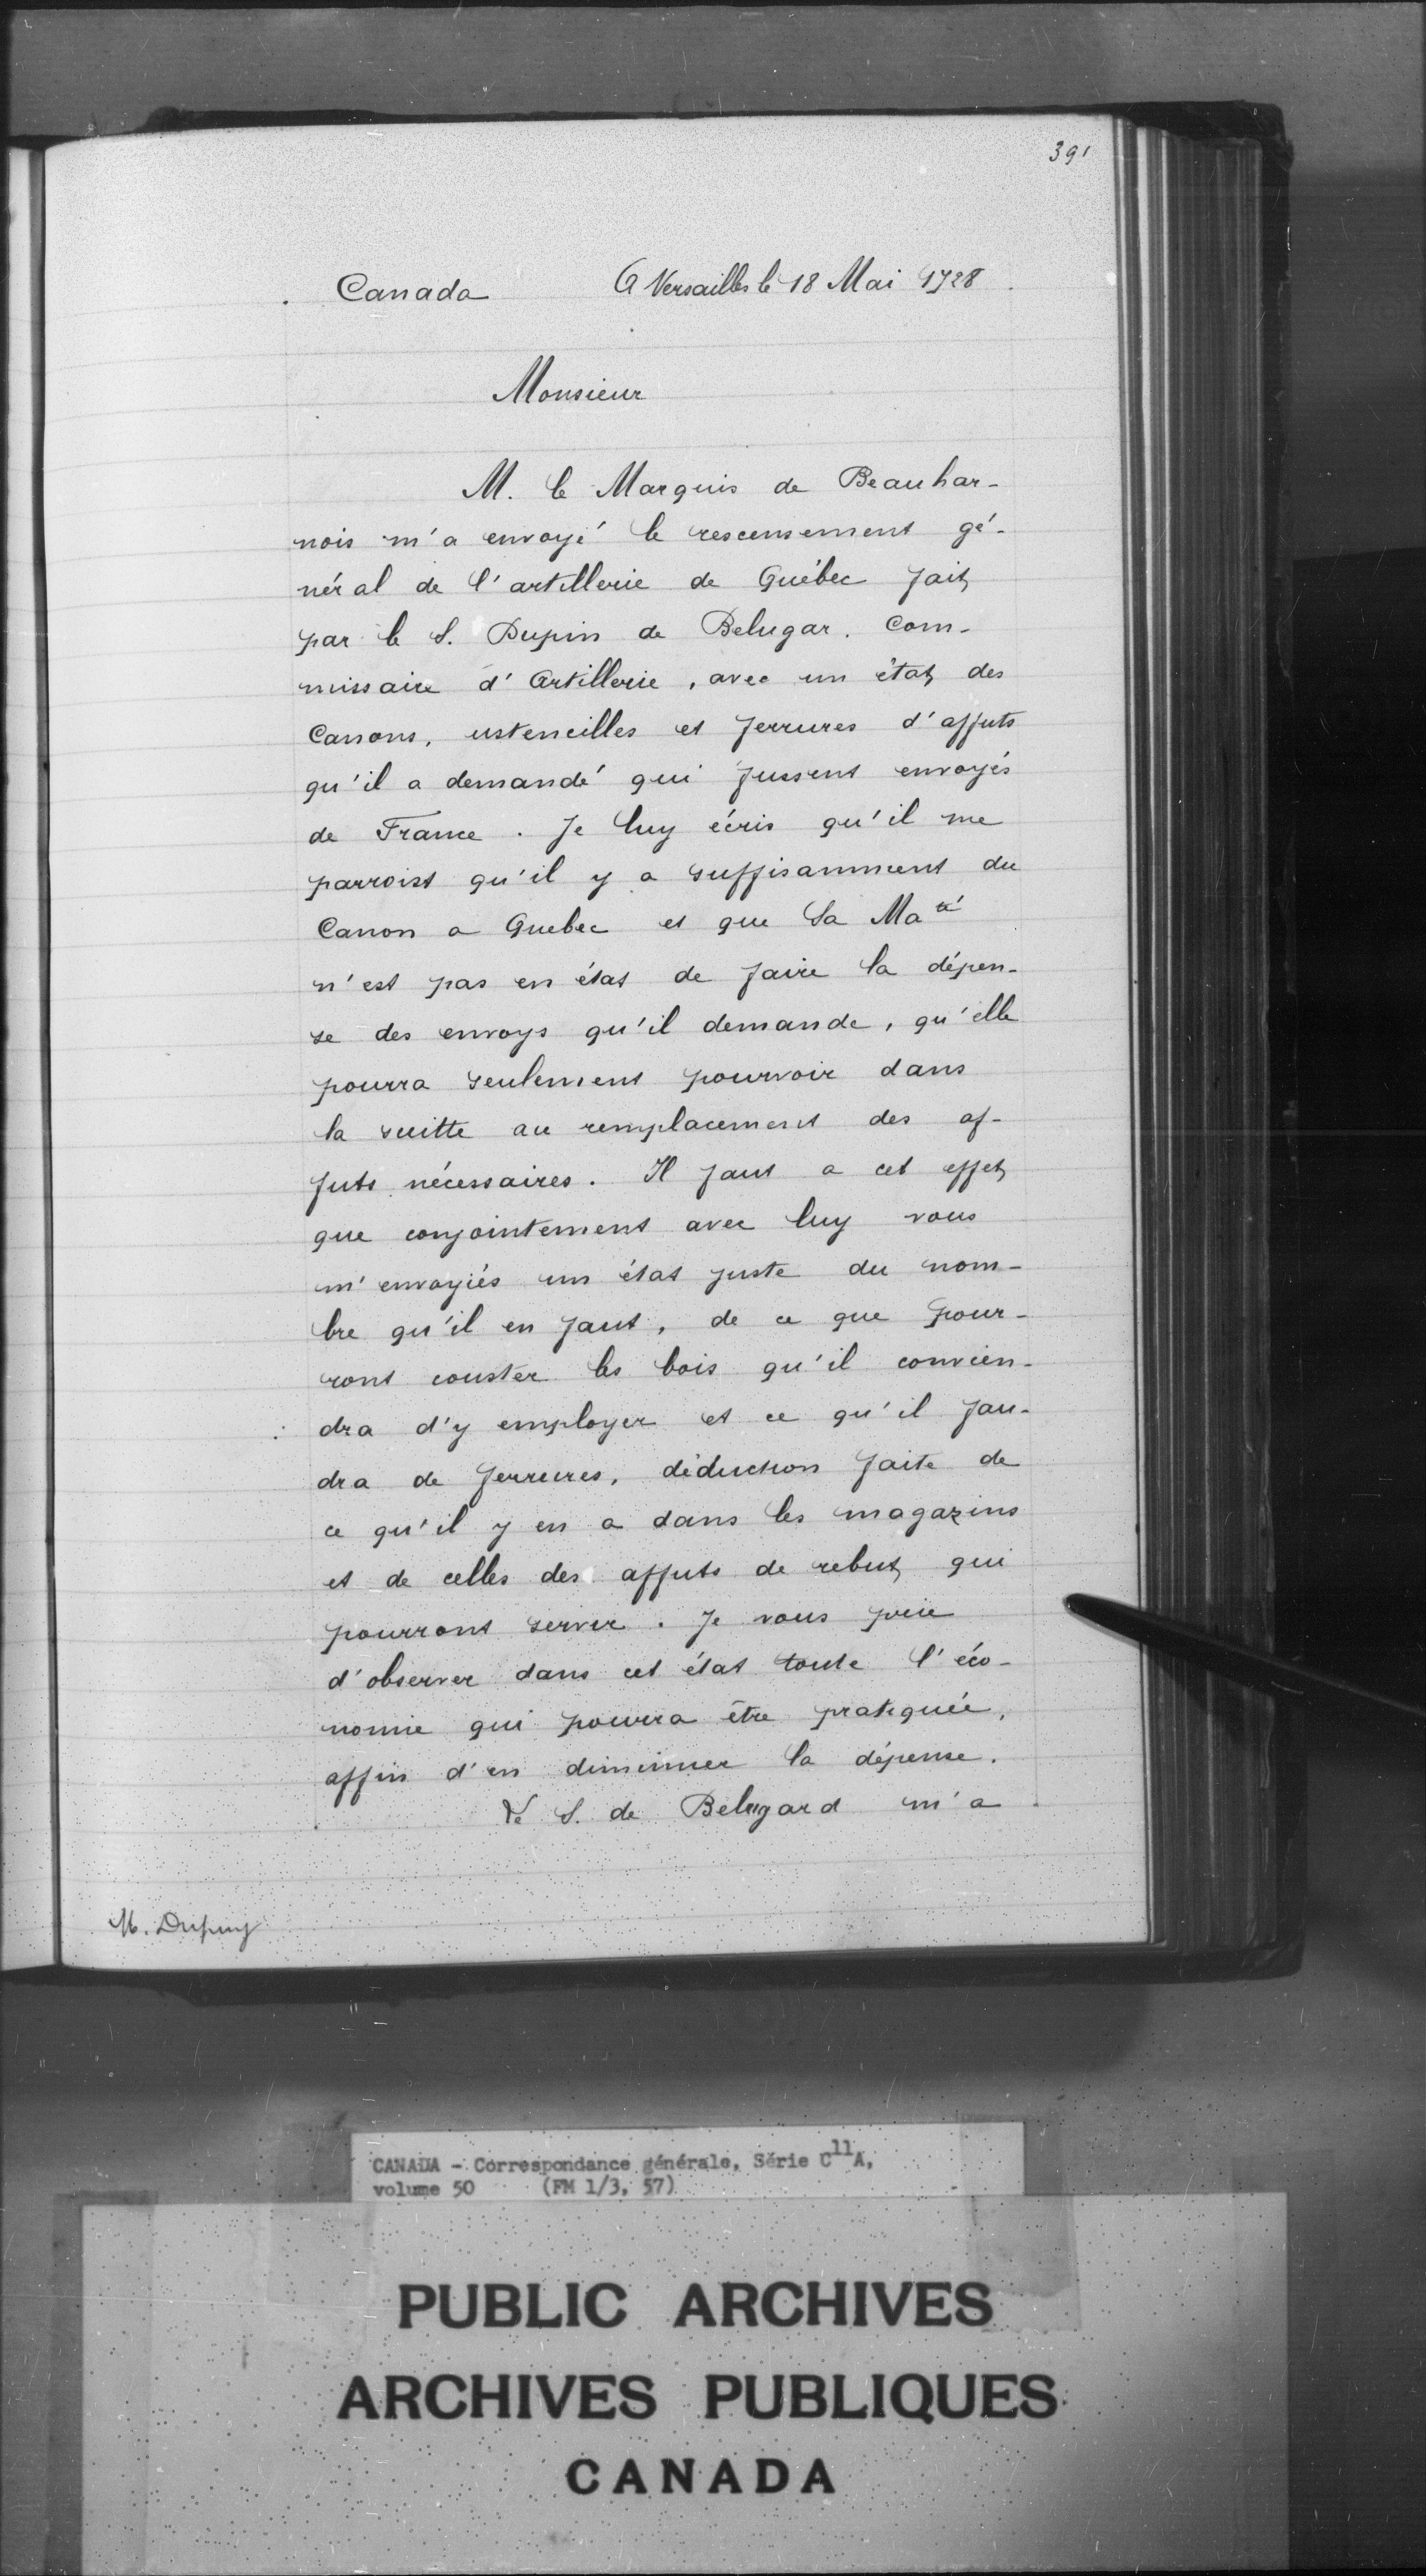 391
Canada A Versailles le 18 Mai 1728.
Monsieur
M. le Marquis de Beauhar-
nois m'a envoyé le rescensement gé-
néral de l'artillerie de Québec fait
par le S. Dupin de Belugar. Com-
missaire d'Artillerie, avec un état des
Canons, ustencilles et ferrures d'affuts
qu'il a demandé qui fussent envoyés
de France. Je luy écris qu'il me
parroist qu'il y a suffisamment du
Canon a Quebec et que Sa Maté
n'est pas en état de faire la dépen-
se des envoys qu'il demande, qu'elle
pourra seulement pourvoir dans
la suitte au remplacement des af-
futs nécessaires. Il faut a cet effet
que conjointement avec luy vous
m'envoyiés un état juste du nom-
bre qu'il en faut, de ce que pour-
ront couster les bois qu'il convien-
dra d'y employer et ce qu'il fau-
dra de ferrures, déduction faite de
ce qu'il y en a dans les magazins
et de celles des affuts de rebut qui
pourront servir. Je vous prie
d'observer dans cet état toute l'éco-
nomie qui pourra être pratiquée,
affin d'en diminuer la dépense.
Le S. de Belugard m'a
M. Dupuy
CANADA - Correspondance générale, Série C11A,
volume 50 (FM 1/3, 57)
PUBLIC ARCHIVES
ARCHIVES PUBLIQUES
CANADA